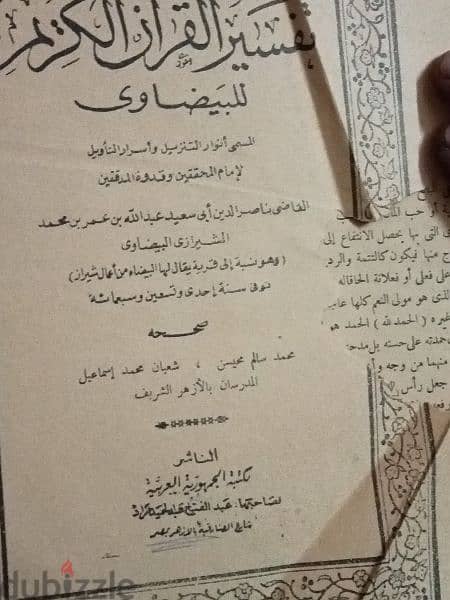 تفسير القرآن الكريم
للبيضاوى
المسمى أنوار التنزيل وأسرار التأويل
لإمام المحققين وقدوة المدققين
القاضى ناصر الدين أبى سعيد عبد الله بن عمر بن محمد
الشيرازى البيضاوى
(وهو نسبة إلى قرية يقال لها البيضاء من أعمال شيراز)
توفى سنة إحدى وتسعين وسبعمائة
صححه
محمد سالم محيسن ، شعبان محمد إسماعيل
المدرسان بالأزهر الشريف
الناشر
مكتبة الجمهورية العربية
لصاحبها: عبد الفتاح عبد الحميد مراد
شارع الصنادقية بالأزهر بمصر
أو حب الله
التى بها يحصل الانتفاع إلى
ج منها فيكون كالتتمة والرد
على فعلى أو فعلانة الحاق له
الذى هو مولى النعم كلها عا
غيره (الحمد لله) الحمد هو
حمدته على حسنه بل مدحة
منهما من وجه و
جعل رأس
dubizzle